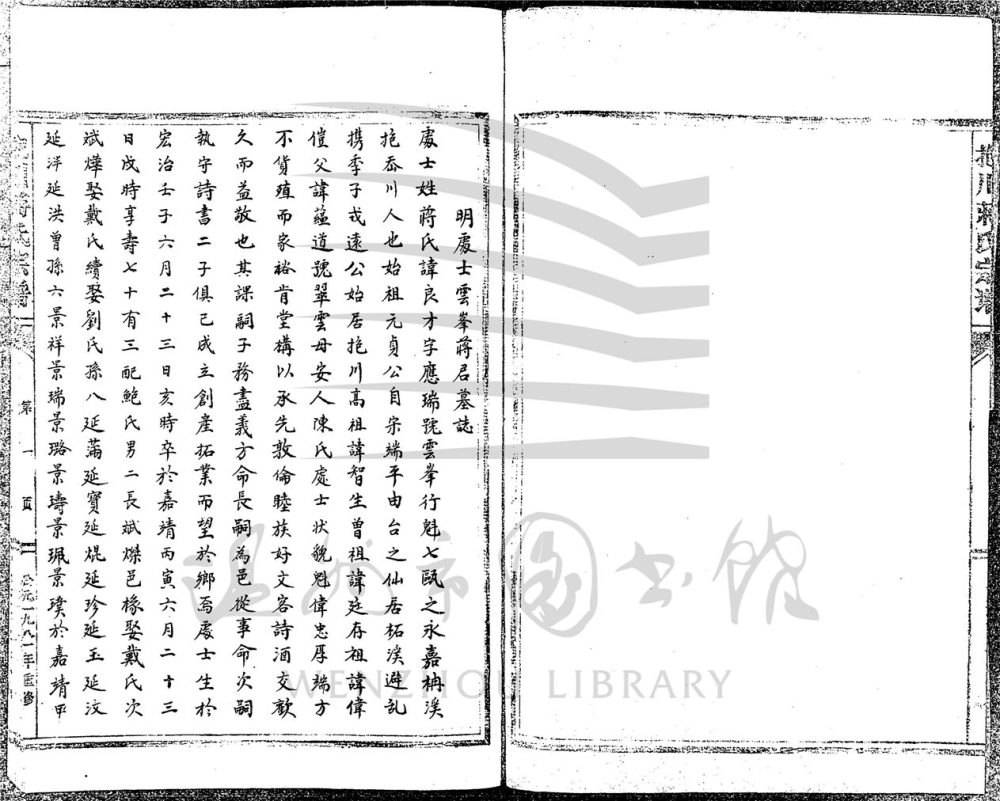 明處士雲峯蔣君墓誌
處士姓蔣氏諱良才字應瑞號雲峯行魁七甌之永嘉枏溪
岙川人也始祖元貞公自宋端平由台之仙居柘溪避乱
携季子茂遠公始居川高祖諱智生曾祖諱廷存祖諱偉
僅父諱蘊道號翠雲母安人陳氏處士状貌魁偉忠厚端方
不貨殖而家裕肯堂構以承先敦倫睦族好文客詩酒交歡
久而益敬也其課嗣子務盡義方命長嗣為邑從事命次嗣
執守詩書二子俱已成立創產拓業而望於鄉焉處士生於
宏治壬子六月二十三日亥時卒於嘉靖丙寅六月二十三
日戌時享壽七十有三配鮑氏男二長斌燦邑椽娶戴氏次
斌燁娶戴氏續娶劉氏孫八延滿延寶延焜延珍延玉延汶
延洋延洪曾孫六景祥景瑞景璐景璹景珮景璞於嘉靖甲
第一頁
公元一九八一年重修
蔣氏宗譜
温州市圖書館
WENZHOU LIBRARY